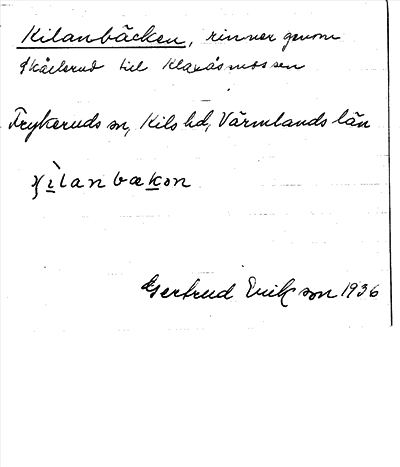 Kilanbäcken, rinner genom
Skållerud till Klaxåsmossen
Frykeruds sn, Kils hd, Värmlands län
Gertrud Erikson 1936